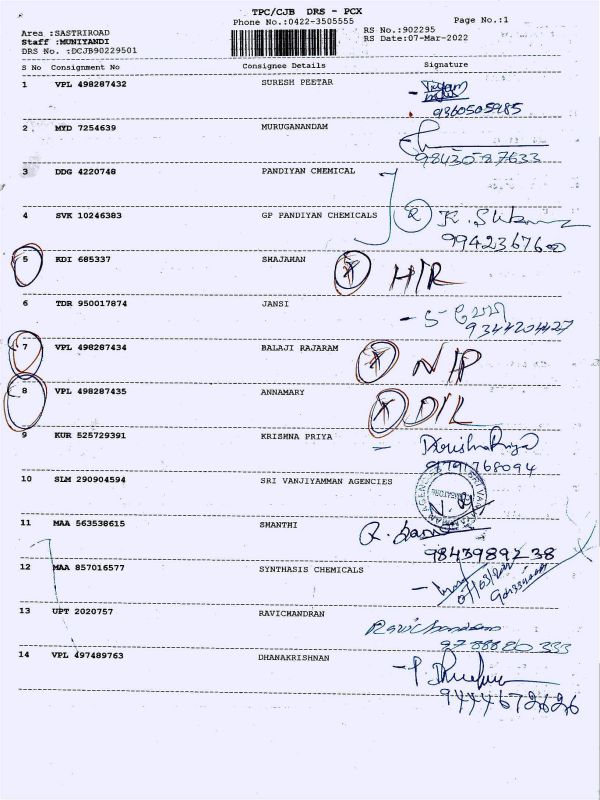 TPC/CJB DRS - PCX
Phone No.:0422-3505555
Page No.:1
Area :SASTRIROAD
RS No.:902295
Staff :MUNIYANDI
RS Date:07-Mar-2022
DRS No. :DCJB90229501
S No Consignment No Consignee Details Signature
1 VPL 498287432 SURESH PEETAR
9360505985
2 MYD 7254639 MURUGANANDAM
3 DDG 4220748 PANDIYAN CHEMICAL
4 SVK 10246383 GP PANDIYAN CHEMICALS
5 KDI 685337 SHAJAHAN H/R
6 TDR 950017874 JANSI
9344204427
7 VPL 498287434 BALAJI RAJARAM N/P
8 VPL 498287435 ANNAMARY D/L
9 KUR 525729391 KRISHNA PRIYA KrishnaPriya
9791768094
10 SLM 290904594 SRI VANJIYAMMAN AGENCIES
11 MAA 563538615 SHANTHI
9843989238
12 MAA 857016577 SYNTHASIS CHEMICALS
13 UPT 2020757 RAVICHANDRAN Ravichandran
14 VPL 497489763 DHANAKRISHNAN
9444672626